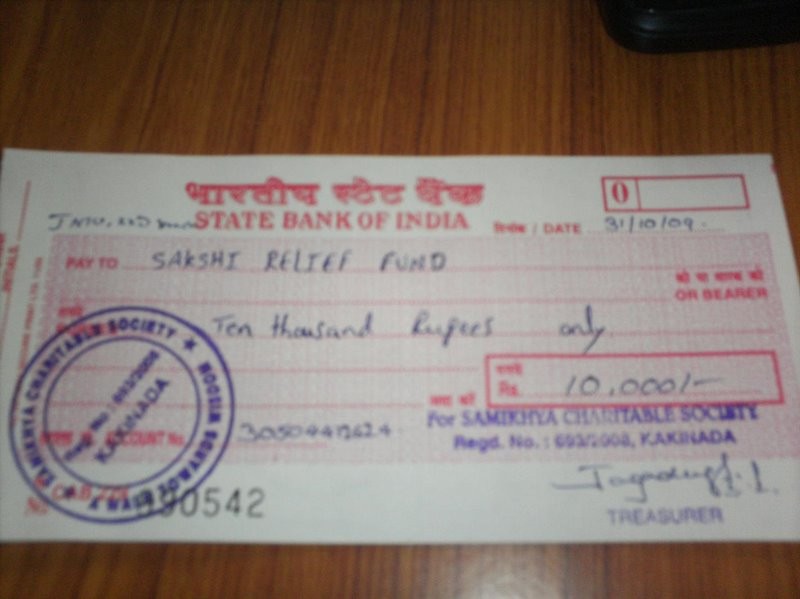 भारतीय स्टेट बैंक
0
STATE BANK OF INDIA
दिनांक / DATE 31/10/09.
PAY TO SAKSHI RELIEF FUND
को या धारक को
OR BEARER
Ten thousand Rupees only
रुपये
Rs. 10,000/-
अदा करें
For SAMIKHYA CHARITABLE SOCIETY
Regd. No. : 693/2008, KAKINADA
ACCOUNT No.
SAMIKHYA CHARITABLE SOCIETY
Regd. No : 693/2008
KAKINADA
No
TREASURER